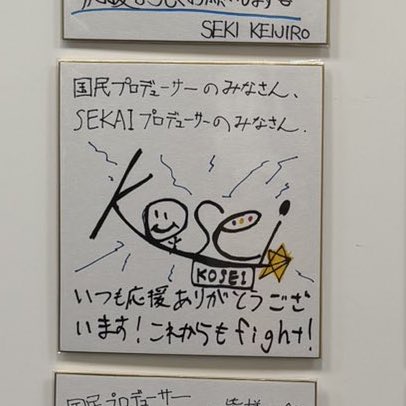 SEKI KEIJIRO
国民プロデューサーのみなさん、
SEKAIプロデューサーのみなさん.
Kosei
KOSEI
いつも応援ありがとうござ
います!これからもfight!
国民プロデューサー